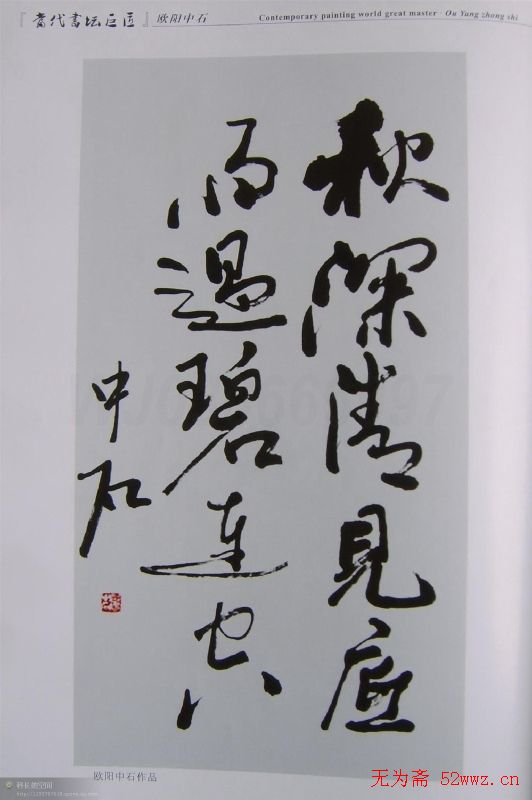 『当代书坛巨匠』欧阳中石
Contemporary painting world great master · Ou Yang zhong shi
秋深清見底
雨過碧連空
中石
欧阳中石作品
无为斋 52wwz.cn